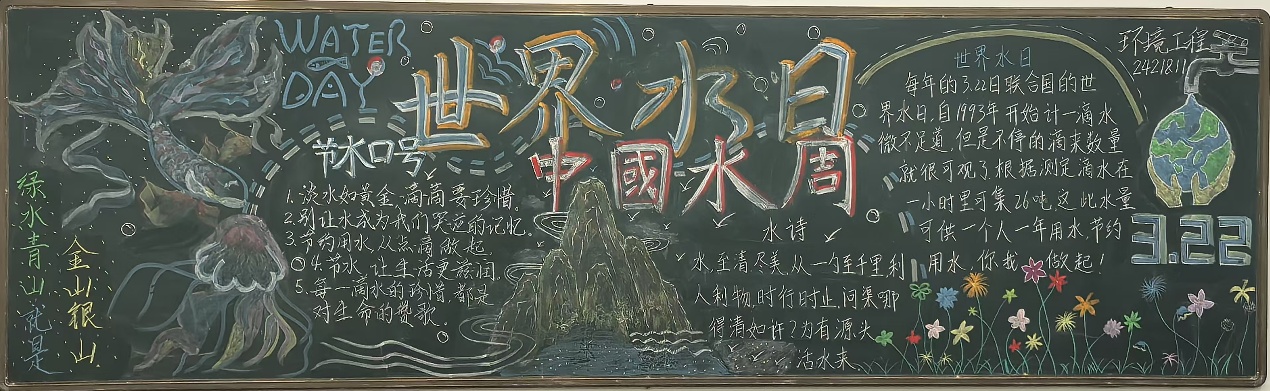 WATER
DAY
世界水日
中國水周
绿水青山就是
金山银山
节水口号
1.淡水如黄金,滴滴要珍惜.
2.别让水成为我们哭泣的记忆.
3.节约用水,从点滴做起
4.节水,让生活更滋润.
5.每一滴水的珍惜,都是
对生命的赞歌
水诗
水,至清尽美,从一勺至千里利
人利物,时行时止,问渠哪
得清如许?为有源头
活水来.
世界水日
每年的3.22日联合国的世
界水日,自1993年开始计一滴水
微不足道,但是不停的滴来数量
就很可观了根据测定滴水在
一小时里可集26吨,这些水量
可供一个人一年用水,节约
用水,你我做起!
环境工程
2421811
3.22